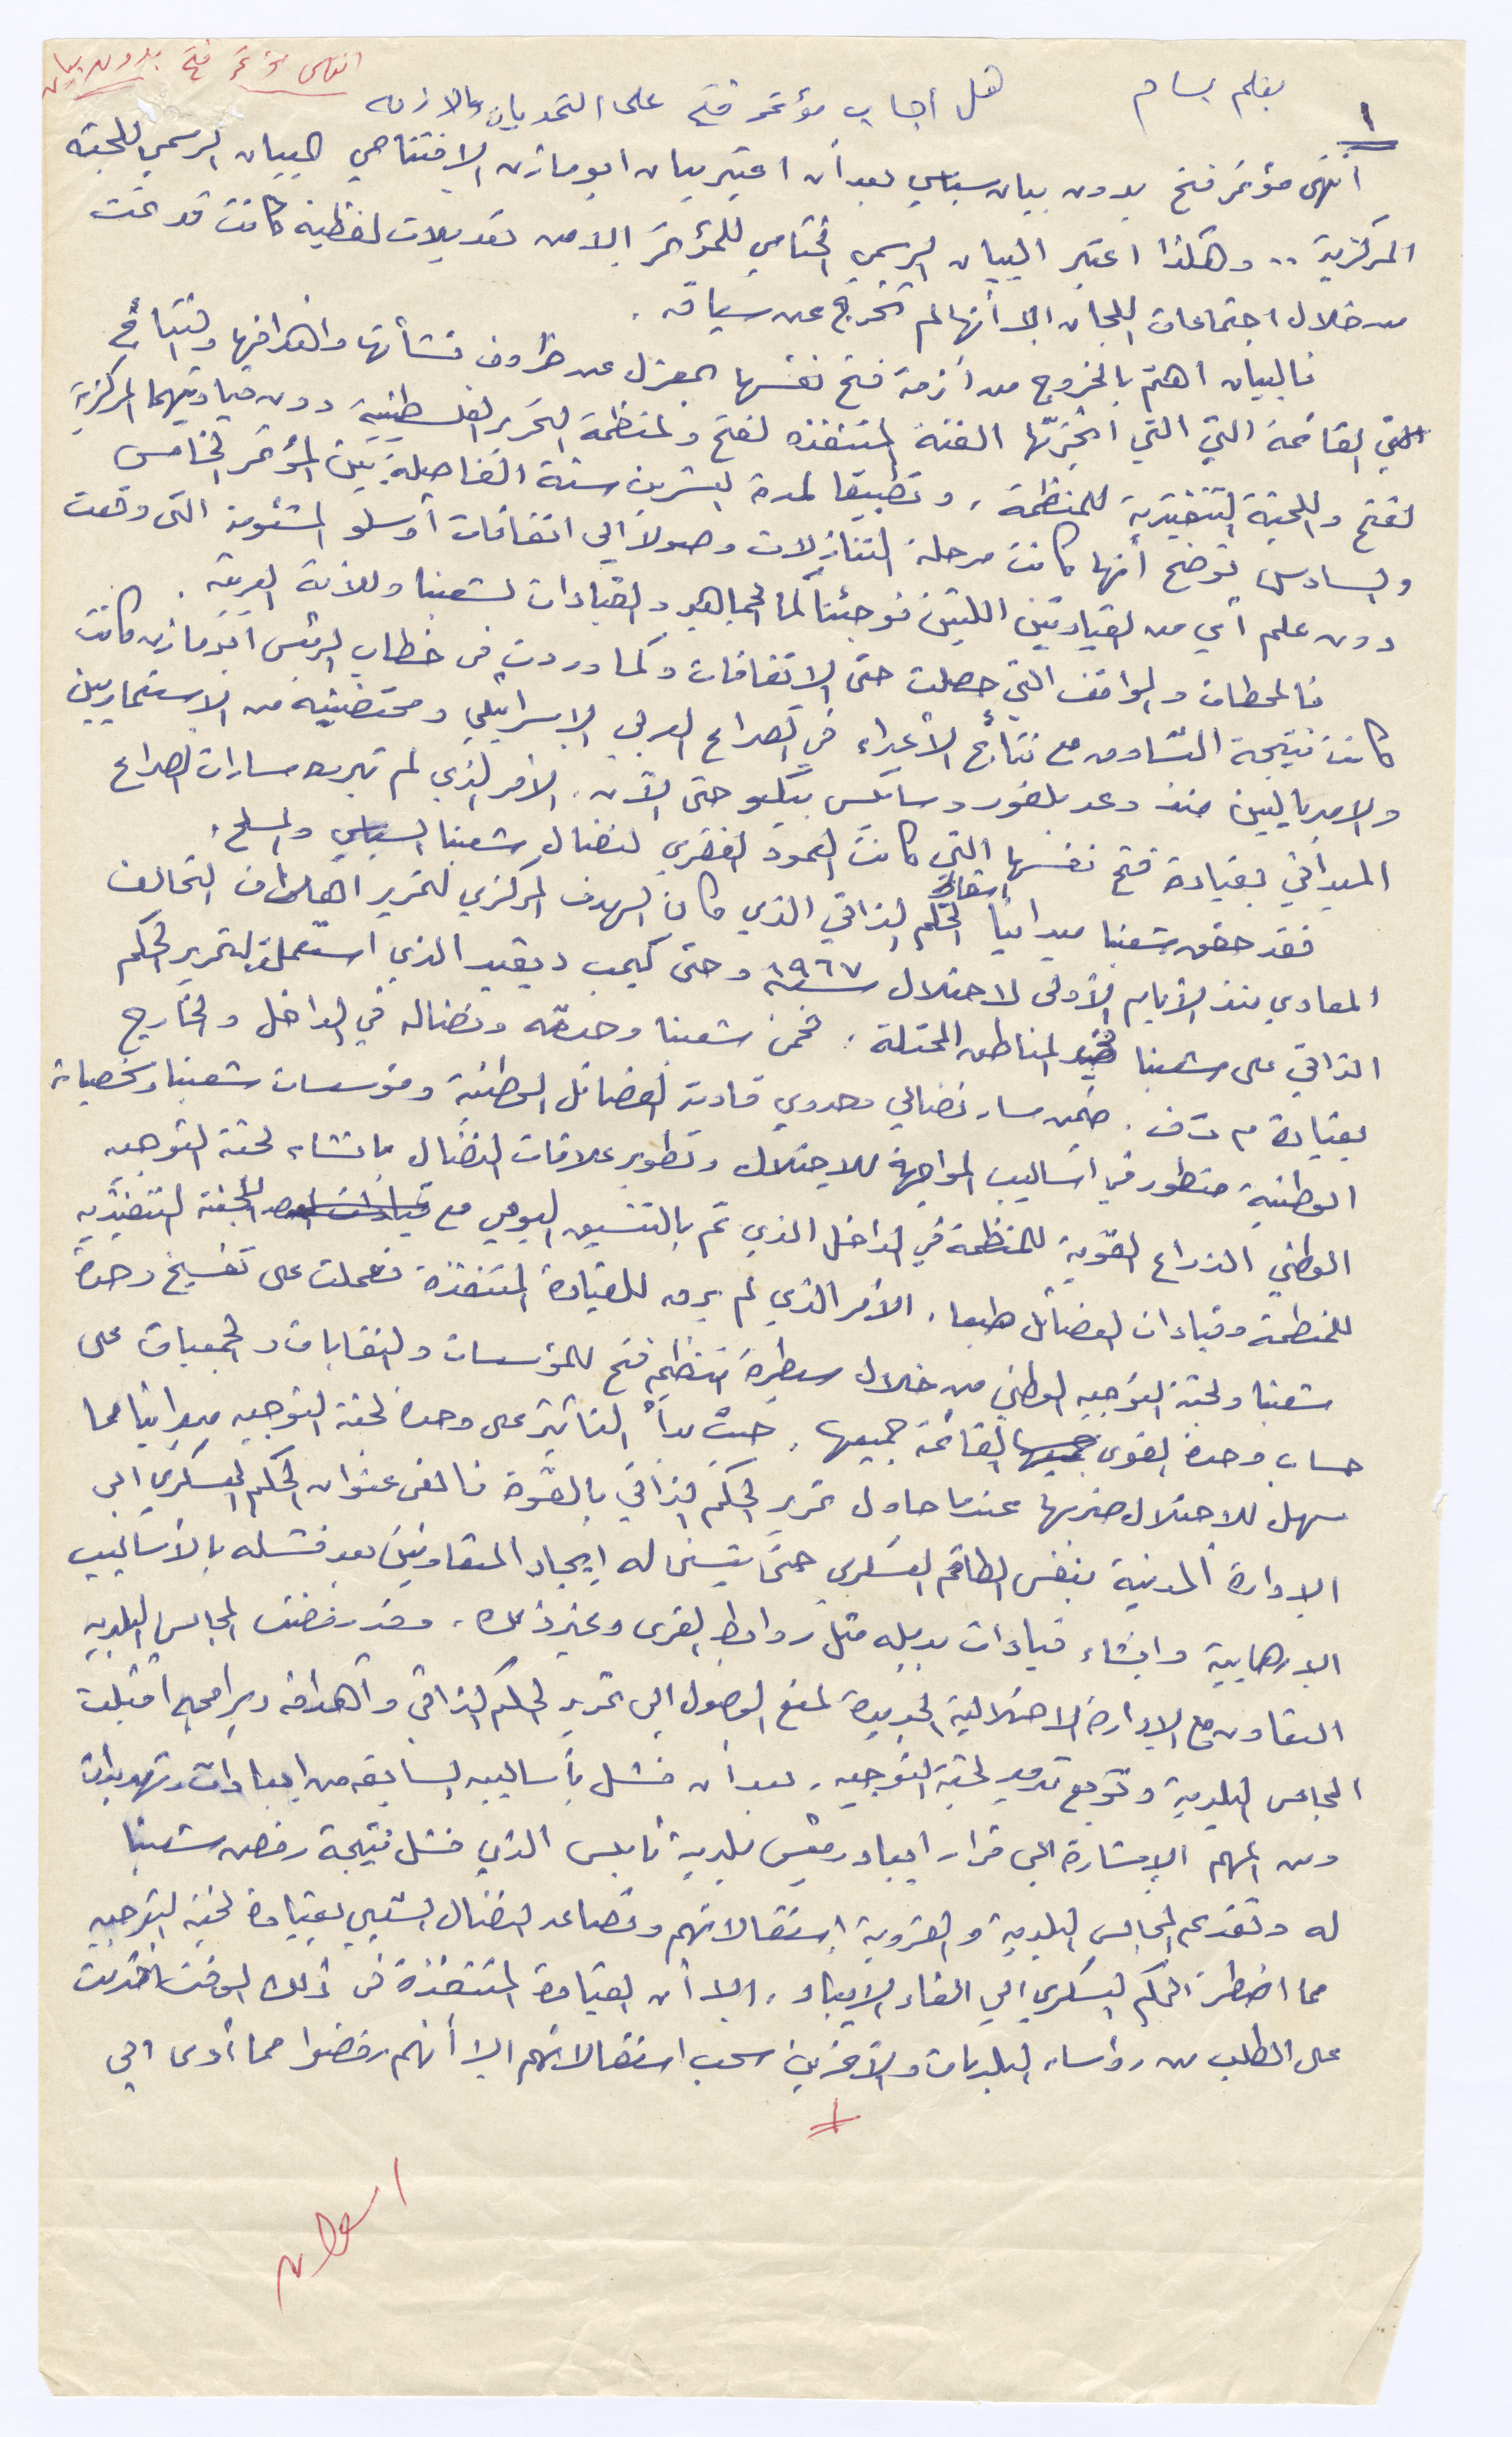 انتهى مؤتمر فتح بدون بيان
بقلم بسام
هل أجاب مؤتمر فتح على التحديات والازمه
١
انتهى مؤتمر فتح بدون بيان سياسي بعد أن اعتبر بيان ابو مازن الافتتاحي البيان الرسمي للجنة
المركزية .. وهكذا اعتبر البيان الرسمي الختامي للمؤتمر الا من تعديلات لفظية كانت قد تمت
من خلال اجتماعات اللجان الا أنها لم تخرج عن سياقه .
فالبيان اهتم بالخروج من أزمة فتح نفسها بمعزل عن ظروف نشأتها واهدافها ونتائج
القائمة التي التي انجزتها الفئة المتنفذه لفتح ولمنظمة التحرير الفلسطينية دون قيادتيهما المركزية
لفتح واللجنة التنفيذية للمنظمة ، وتطبيقا لمدة العشرين سنة الفاصلة بين المؤتمر الخامس
والسادس يتوضح أنها كانت مرحلة التنازلات وصولا الى اتفاقات أوسلو المشئومة التي وقعت
دون علم أي من القيادتين اللتين فوجئتا كما الجماهير والقيادات لشعبنا وللأمة العربية .
فالمحطات والمواقف التي حصلت حتى الاتفاقات وكما وردت في خطاب الرئيس أبو مازن كانت
كانت نتيجة التساوق مع نتائج الأعداء في الصراع العربي الاسرائيلي ومحتضنيه من الاستعماريين
والامبرياليين منذ وعد بلفور وسايكس بيكو حتى الآن . الأمر الذي لم تبرره مسارات الصراع
الميداني بقيادة فتح نفسها التي كانت العمود الفقري لنضال شعبنا السياسي والمسلح .
فقد حقق شعبنا ميدانياً اسقاط الحكم الذاتي الذي كان الهدف المركزي لتمرير اهداف التحالف
المعادي منذ الأيام الأولى لاحتلال سنة ١٩٦٧ وحتى كيمب ديفيد الذي استعملت لتمرير الحكم
الذاتي على شعبنا في المناطق المحتلة . فمن شعبنا وحدته ونضاله في الداخل والخارج
بقيادة م ت ف . ضمن مسار نضالي وحدوي قادته الفصائل الوطنية ومؤسسات شعبنا وشخصياته
الوطنية متطور في اساليب المواجهة للاحتلال وتطوير علاقات النضال بانشاء لجنة التوجيه
الوطني الذراع القوية للمنظمة في الداخل الذي تم بالتنسيق اليومي مع اللجنة التنفيذيه
للمنظمة وقيادات الفصائل طبعا . الأمر الذي لم يرق للقيادة المتنفذة فعملت على تفسيخ وحدة
شعبنا ولجنة التوجيه الوطني من خلال سيطرة تنظيم فتح للمؤسسات والنقابات والجمعيات على
حساب وحدة القوى القائمة جميعها . حيث بدأ التأثير على وحدة لجنة التوجيه ميدانيا مما
سهل للاحتلال ضربها عندما حاول تمرير الحكم الذاتي بالقوة فالغى عنوان الحكم العسكري الى
الادارة المدنية بنفس الطاقم العسكري حتى يتسنى له إيجاد المتعاونين بعد فشله بالأساليب
الارهابية وانشاء قيادات بديله مثل روابط القرى وغير ذلك . وقد رفضت المجالس البلديه
التعاون مع الادارة الاحتلالية الجديدة لمنع الوصول الى تمرير الحكم الذاتي وأهدافه وبرامجه اقيلت
المجالس البلدية وتوبع تدمير لجنة التوجيه ، بعد أن فشل بأساليبه السابقه من ابعادات وتهديدات
ومن المهم الاشارة الى قرار ابعاد رئيس بلدية نابلس الذي فشل نتيجة رفض شعبنا
له وتقديم المجالس البلدية والقروية إستقالاتهم وتصاعد النضال الشعبي بقيادة لجنة التوجيه
مما اضطر الحكم العسكري الى الغاء الابعاد . الا أن القيادة المتنفذة في ذلك الوقت
على الطلب من رؤساء البلديات والآخرين سحب استقالاتهم الا أنهم رفضوا مما أدى الى